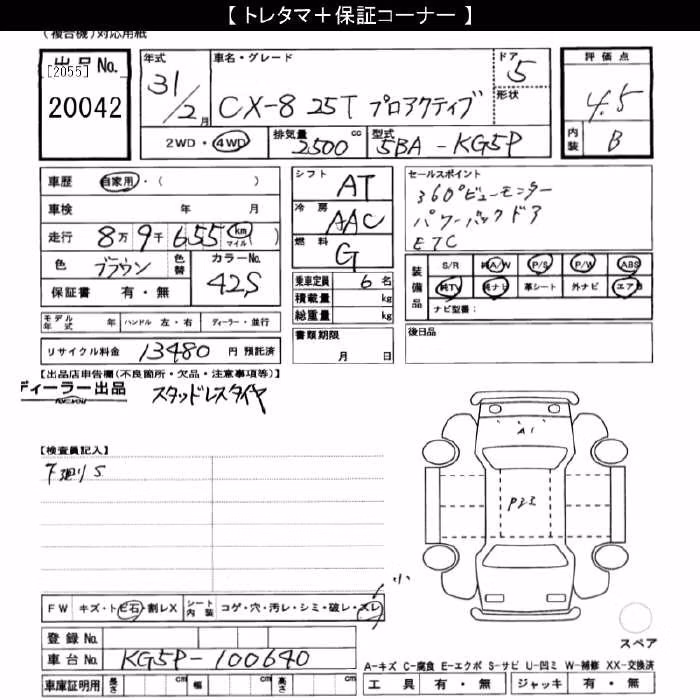 【 トレタマ＋保証コーナー 】
(複合機)対応用紙
出品No.
[2055]
20042
年式
31/2月
車名・グレード
CX-8 25T プロアクティブ
ドア
5
形状
評価点
4.5
内装
B
2WD・4WD
排気量
2500 cc
型式
5BA-KG5P
車歴
自家用・( )
車検 年 月
走行 8万9千655 km マイル ( )
色
ブラウン
色替
カラーNo.
42S
保証書 有・無
シフト
AT
冷房
AAC
燃料
G
乗車定員 6名
積載量 kg
総重量 kg
書類期限
月 日
セールスポイント
360°ビューモニター
パワーバックドア
ETC
装備品
S/R 純A/W P/S P/W ABS
純TV 純ナビ 革シート 外ナビ エアB
ナビ型番：
後日品
モデル年式 年 ハンドル 左・右 ディーラー・並行
リサイクル料金 13480 円 預託済
【出品店申告欄(不良箇所・欠品・注意事項等)】
ディーラー出品
スタッドレスタイヤ
【検査員記入】
下廻りS
A1
P23
小
FW キズ・トビ石・割レX シート内装 コゲ・穴・汚レ・シミ・破レ・スレ
登録No.
車台No. KG5P-100640
車庫証明用 長さ cm 幅 cm 高さ cm
スペア
A-キズ C-腐食 E-エクボ S-サビ U-凹ミ W-補修 XX-交換済
工具 有・無 ジャッキ 有・無